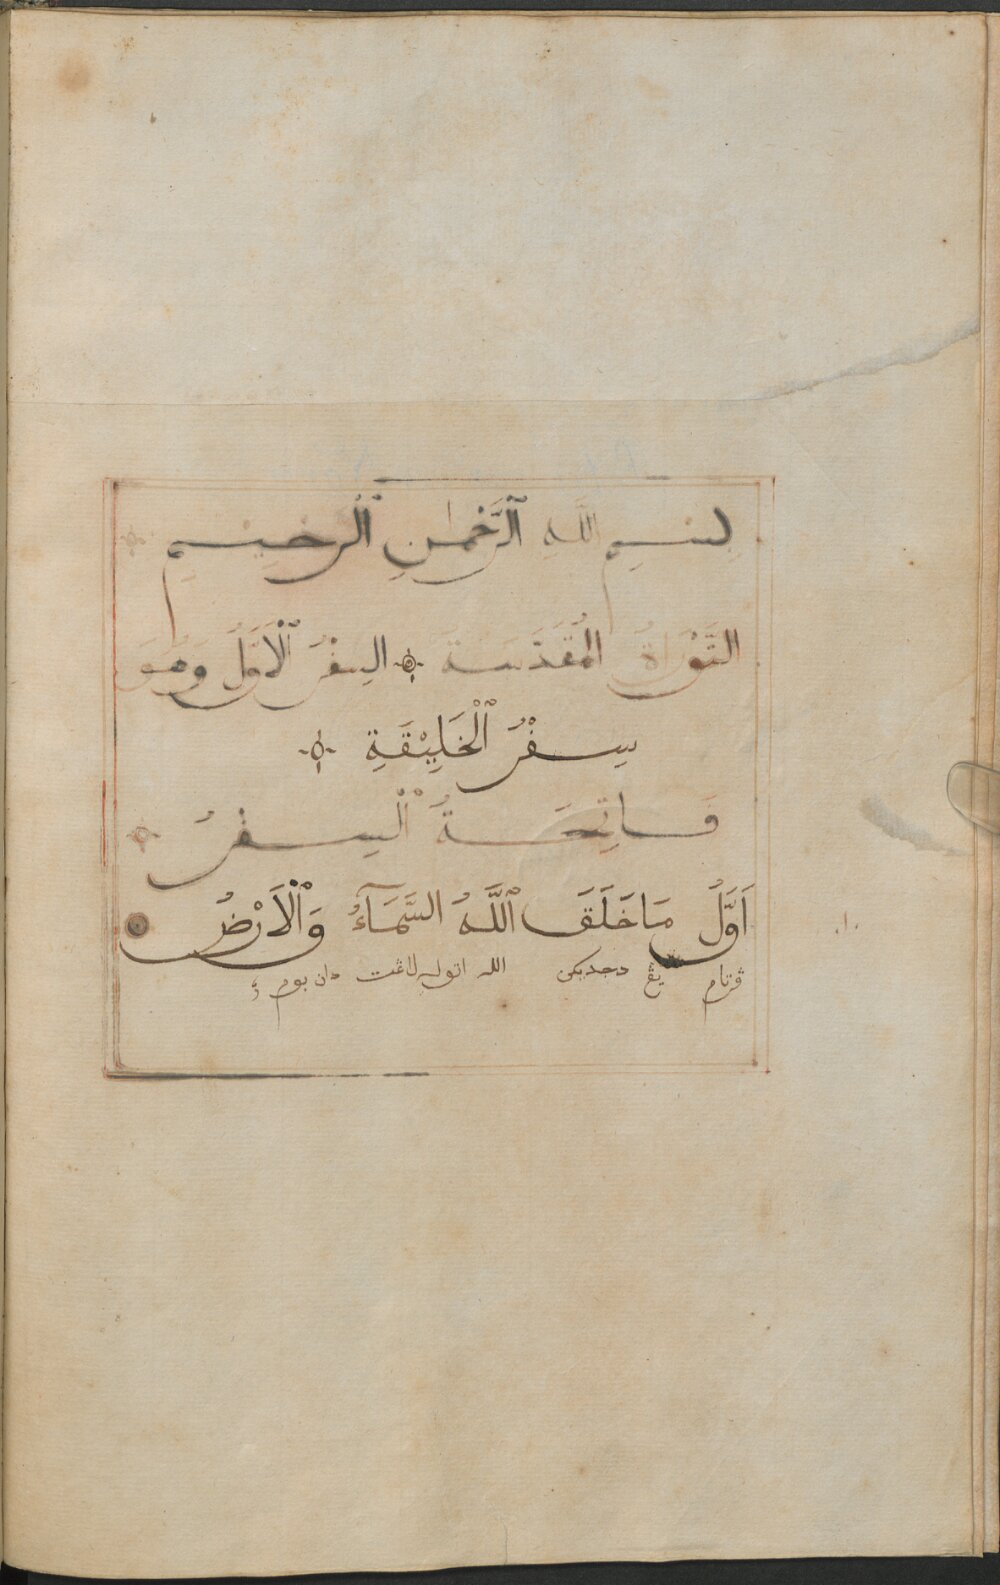 بِسْمِ اللَّهِ الرَّحْمٰنِ الرَّحِيْمِ
التَّوْرَاةُ الْمُقَدَّسَةُ السِفْرُ الْاَوَّلُ وَهُوَ
سِفْرُ الْخَلِيْقَةِ
فَاتِحَةُ السِفْرُ
اَوَّلُ مَاخَلَقَ اللَّهُ السَّمَآءُ وَالْاَرْضُ
ڤرتام يڠ دجديكن الله ايتوله لاڠت دان بوم
١